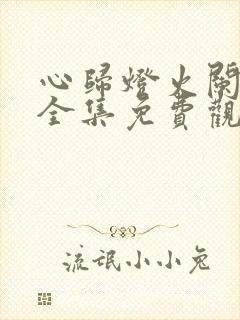 心歸燈火闌
全集免費觀
流氓小小兔